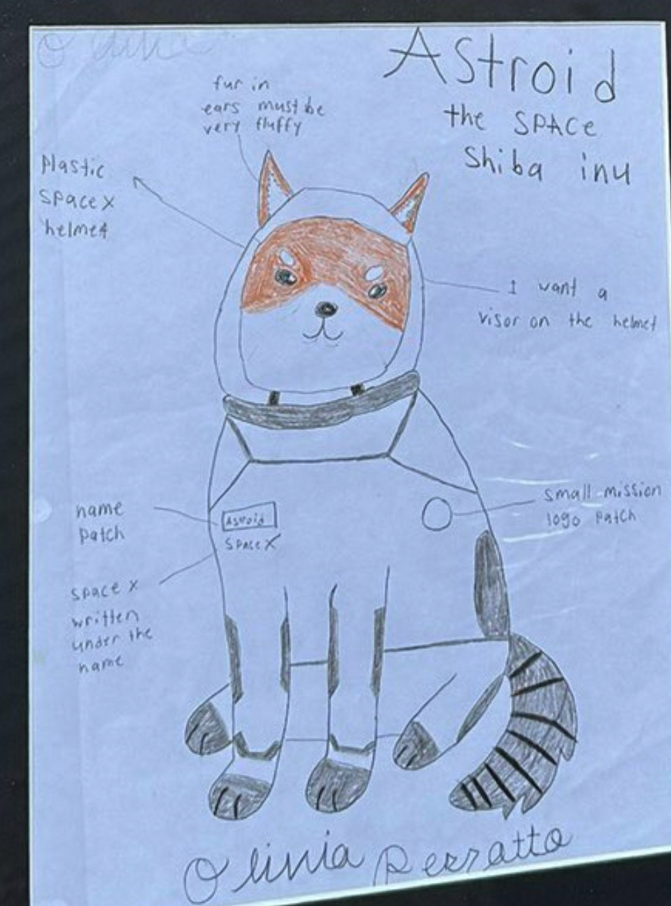 Olivia
Astroid
the SPACE
Shiba inu
fur in
ears must be
very fluffy
Plastic
SPaceX
helmet
I want a
visor on the helmet
name
Patch
Astroid
SPaceX
small mission
logo Patch
space x
written
under the
name
Olivia Perrotto